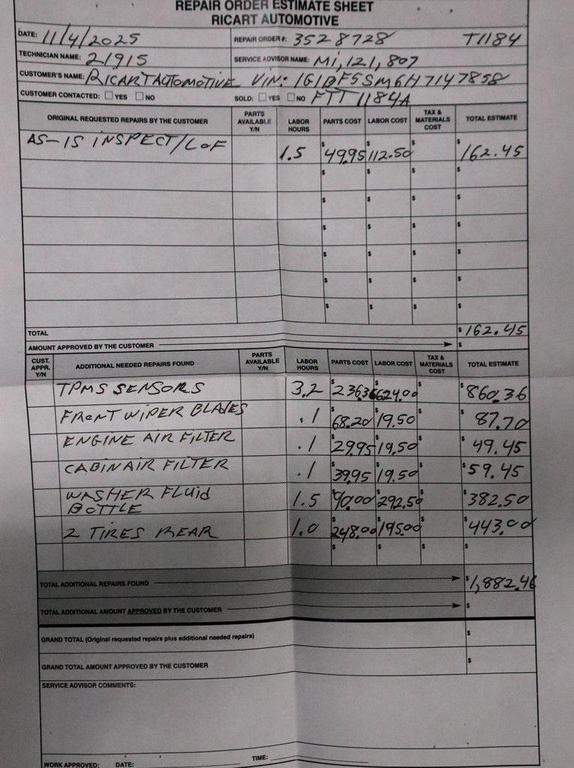 REPAIR ORDER ESTIMATE SHEET
RICART AUTOMOTIVE
DATE: 11/4/2025 REPAIR ORDER #: 3528728 T1184
TECHNICIAN NAME: 21915 SERVICE ADVISOR NAME: MI, 121,807
CUSTOMER'S NAME: RICART AUTOMOTIVE VIN: 1G1BF5SM6H7147858
CUSTOMER CONTACTED: YES NO SOLD: YES NO FTT1184A
ORIGINAL REQUESTED REPAIRS BY THE CUSTOMER PARTS AVAILABLE Y/N LABOR HOURS PARTS COST LABOR COST TAX & MATERIALS COST TOTAL ESTIMATE
AS-IS INSPECT/LOF 1.5 $49.95 $112.50 $ $162.45
$ $ $ $
$ $ $ $
$ $ $ $
$ $ $ $
$ $ $ $
$ $ $ $
TOTAL $162.45
AMOUNT APPROVED BY THE CUSTOMER $
CUST. APPR. Y/N ADDITIONAL NEEDED REPAIRS FOUND PARTS AVAILABLE Y/N LABOR HOURS PARTS COST LABOR COST TAX & MATERIALS COST TOTAL ESTIMATE
TPMS SENSORS 3.2 $236.36 $624.00 $ $860.36
FRONT WIPER BLADES .1 $68.20 $19.50 $ $87.70
ENGINE AIR FILTER .1 $29.95 $19.50 $ $49.45
CABIN AIR FILTER .1 $39.95 $19.50 $ $59.45
WASHER FLUID BOTTLE 1.5 $90.00 $292.50 $ $382.50
2 TIRES REAR 1.0 $248.00 $195.00 $ $443.00
$ $ $ $
TOTAL ADDITIONAL REPAIRS FOUND $1,882.46
TOTAL ADDITIONAL AMOUNT APPROVED BY THE CUSTOMER $
GRAND TOTAL (Original requested repairs plus additional needed repairs) $
GRAND TOTAL AMOUNT APPROVED BY THE CUSTOMER $
SERVICE ADVISOR COMMENTS:
WORK APPROVED: DATE: TIME: